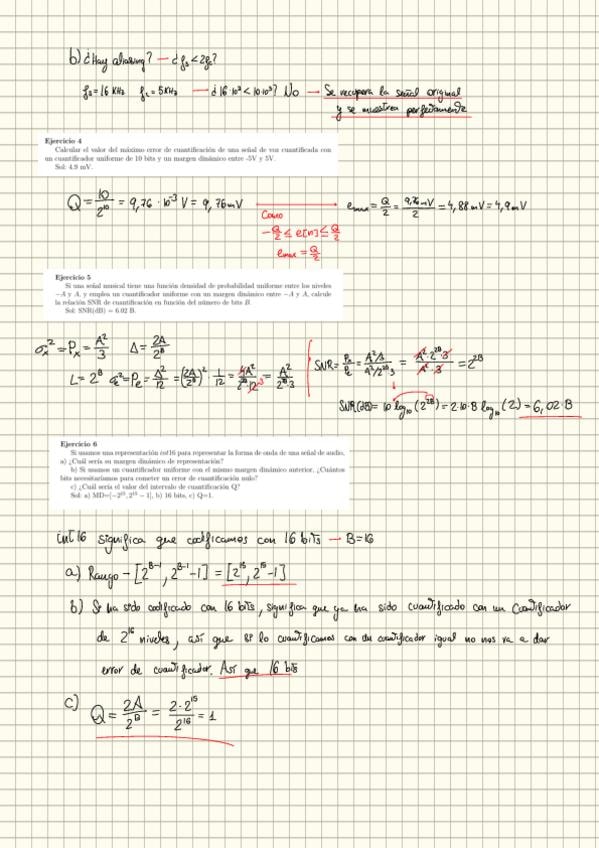 b) ¿Hay aliasing? — ¿ fs < 2fc?
fs = 16 KHz   fc = 5 KHz — ¿ 16·10³ < 10·10³? No → Se recupera la señal original
y se muestrea perfectamente
Ejercicio 4
Calcular el valor del máximo error de cuantificación de una señal de voz cuantificada con
un cuantificador uniforme de 10 bits y un margen dinámico entre -5V y 5V.
Sol: 4.9 mV.
Q = 10/2^10 = 9,76 · 10^-3 V = 9,76 mV → e_max = Q/2 = 9,76 mV/2 = 4,88 mV = 4,9 mV
Como
-Q/2 ≤ e[n] ≤ Q/2
e_max = Q/2
Ejercicio 5
Si una señal musical tiene una función densidad de probabilidad uniforme entre los niveles
−A y A, y emplea un cuantificador uniforme con un margen dinámico entre −A y A, calcule
la relación SNR de cuantificación en función del número de bits B.
Sol: SNR(dB) = 6.02 B.
σx² = Px = A²/3   Δ = 2A/2^B
L = 2^B   σe² = Pe = Δ²/12 = (2A/2^B)² · 1/12 = 4A²/2^2B·12 = A²/2^2B·3
SNR = Px/Pe = A²/3 / A²/2^2B·3 = A²·2^2B·3 / A²·3 = 2^2B
SNR(dB) = 10 log10 (2^2B) = 2·10·B log10 (2) = 6,02·B
Ejercicio 6
Si usamos una representación int16 para representar la forma de onda de una señal de audio,
a) ¿Cuál sería su margen dinámico de representación?
b) Si usamos un cuantificador uniforme con el mismo margen dinámico anterior, ¿Cuántos
bits necesitaríamos para cometer un error de cuantificación nulo?
c) ¿Cuál sería el valor del intervalo de cuantificación Q?
Sol: a) MD=[−2^15, 2^15 − 1], b) 16 bits, c) Q=1.
int16 significa que codificamos con 16 bits — B=16
a) Rango - [2^B-1, 2^B-1 -1] = [2^15, 2^15 -1]
b) Si ha sido codificado con 16 bits, significa que ya ha sido cuantificado con un cuantificador
de 2^16 niveles, así que si lo cuantificamos con un cuantificador igual no nos va a dar
error de cuantificador. Así que 16 bits
c) Q = 2A/2^B = 2·2^15/2^16 = 1